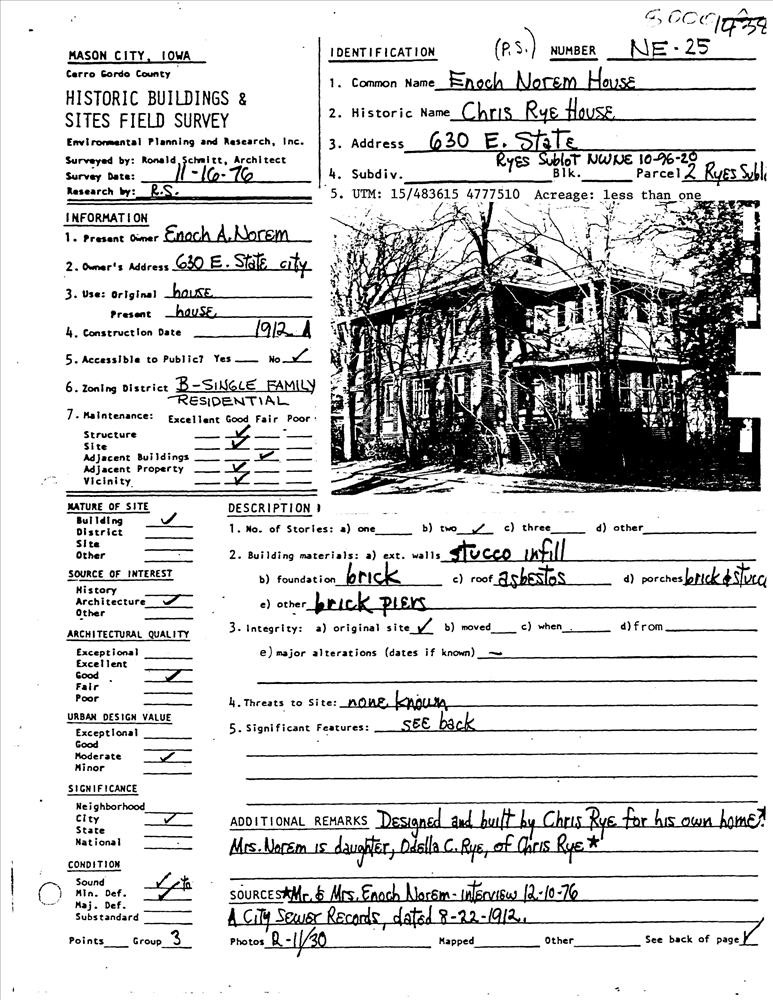 MASON CITY, IOWA
Cerro Gordo County
HISTORIC BUILDINGS &
SITES FIELD SURVEY
Environmental Planning and Research, Inc.
Surveyed by: Ronald Schmitt, Architect
Survey Date: 11-16-76
Research by: R.S.
IDENTIFICATION (P.S.) NUMBER NE-25
1. Common Name Enoch Norem House
2. Historic Name Chris Rye House
3. Address 630 E. State
Ryes Sublot NWNE 10-96-20
4. Subdiv. Blk. Parcel 2 Ryes Subl
5. UTM: 15/483615 4777510 Acreage: less than one
INFORMATION
1. Present Owner Enoch A. Norem
2. Owner's Address 630 E. State city
3. Use: Original house
Present house
4. Construction Date 1912 A
5. Accessible to Public? Yes No ✓
6. Zoning District B-SINGLE FAMILY
RESIDENTIAL
7. Maintenance: Excellent Good Fair Poor
Structure ✓
Site ✓
Adjacent Buildings ✓
Adjacent Property ✓
Vicinity ✓
NATURE OF SITE
Building ✓
District
Site
Other
SOURCE OF INTEREST
History
Architecture ✓
Other
ARCHITECTURAL QUALITY
Exceptional
Excellent
Good ✓
Fair
Poor
URBAN DESIGN VALUE
Exceptional
Good
Moderate ✓
Minor
SIGNIFICANCE
Neighborhood
City ✓
State
National
CONDITION
Sound ✓ to
Min. Def. ✓
Maj. Def.
Substandard
Points Group 3
DESCRIPTION
1. No. of Stories: a) one b) two ✓ c) three d) other
2. Building materials: a) ext. walls stucco infill
b) foundation brick c) roof asbestos d) porches brick & stucc
e) other brick piers
3. Integrity: a) original site ✓ b) moved c) when d) from
e) major alterations (dates if known) —
4. Threats to Site: none known
5. Significant Features: SEE back
ADDITIONAL REMARKS Designed and built by Chris Rye for his own home*.
Mrs. Norem is daughter, Odella C. Rye, of Chris Rye*
SOURCES *Mr. & Mrs. Enoch Norem - interview 12-10-76
A City Sewer Records, dated 8-22-1912.
Photos R-11/30 Mapped Other See back of page ✓